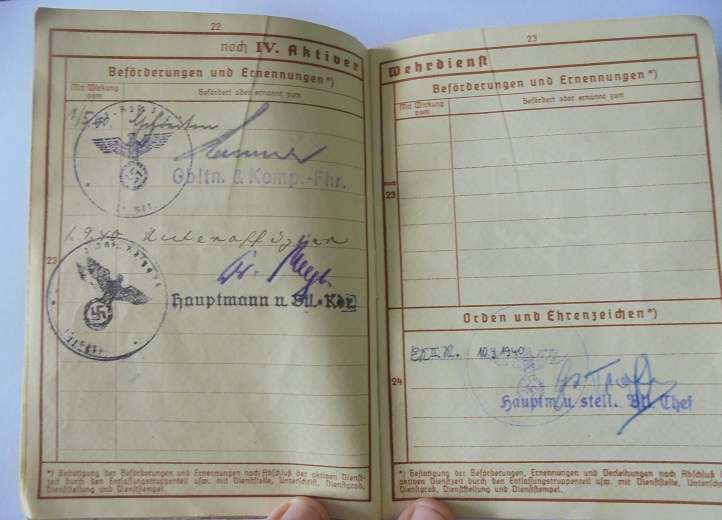 22
noch IV. Aktiver
Beförderungen und Ernennungen*)
Mit Wirkung vom
Befördert oder ernannt zum
1/5.40. Gefreiten
Obltn. & Komp.-Fhr.
1.9.40
23
Hauptmann u. Btl.-Kdr
*) Bestätigung der Beförderungen und Ernennungen nach Abschluß der aktiven Dienst-
zeit durch den Entlassungstruppenteil usw. mit Dienststelle, Unterschrift, Dienstgrad,
Dienststellung und Dienststempel.
23
Wehrdienst
Beförderungen und Ernennungen*)
Mit Wirkung vom
Befördert oder ernannt zum
noch
23
Orden und Ehrenzeichen*)
EK II. Kl. 10.7.1940
24
Hauptm. u. stell. Btl. Chef
*) Bestätigung der Beförderungen, Ernennungen und Verleihungen nach Abschluß
Dienstzeit durch den Entlassungstruppenteil usw. mit Dienststelle, Unterschrift
Dienstgrad, Dienststellung und Dienststempel.